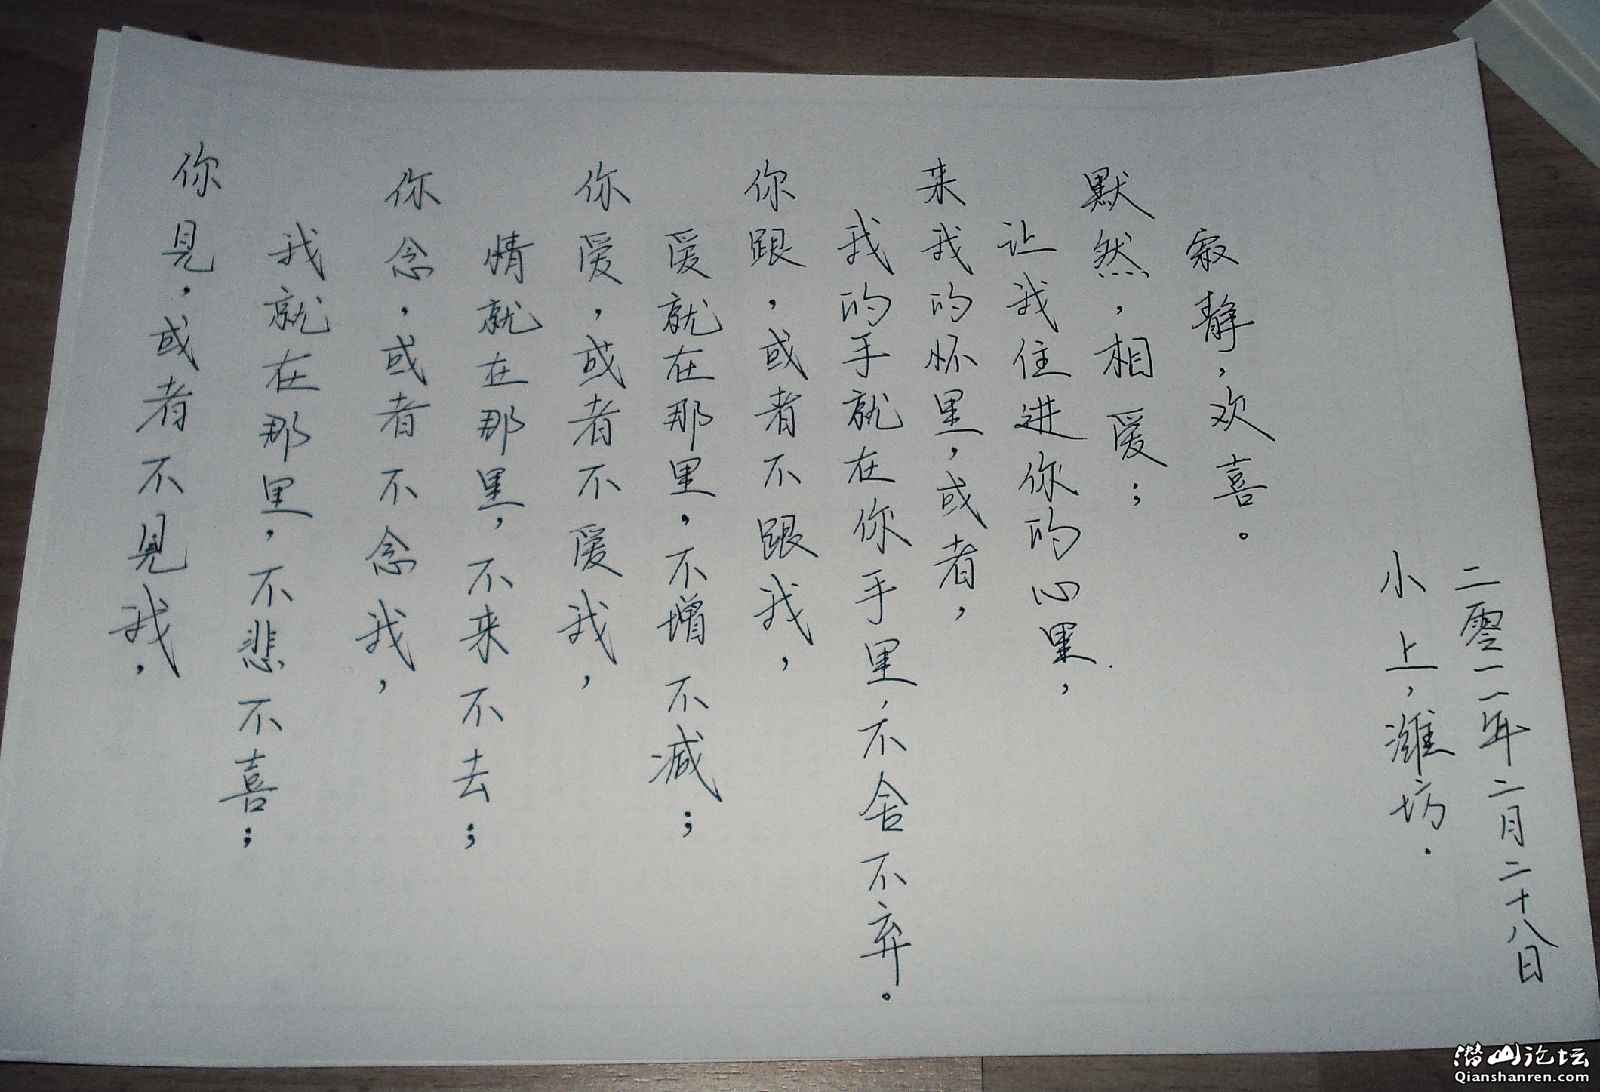 你見，或者不見我，
我就在那里，不悲不喜；
你念，或者不念我，
情就在那里，不来不去；
你爱，或者不爱我，
爱就在那里，不增不减；
你跟，或者不跟我，
我的手就在你手里，不舍不弃。
来我的怀里，或者，
让我住进你的心里，
默然，相爱；
寂静，欢喜。
小上，潍坊.
二零一一年二月二十八日
潜山论坛
Qianshanren.com